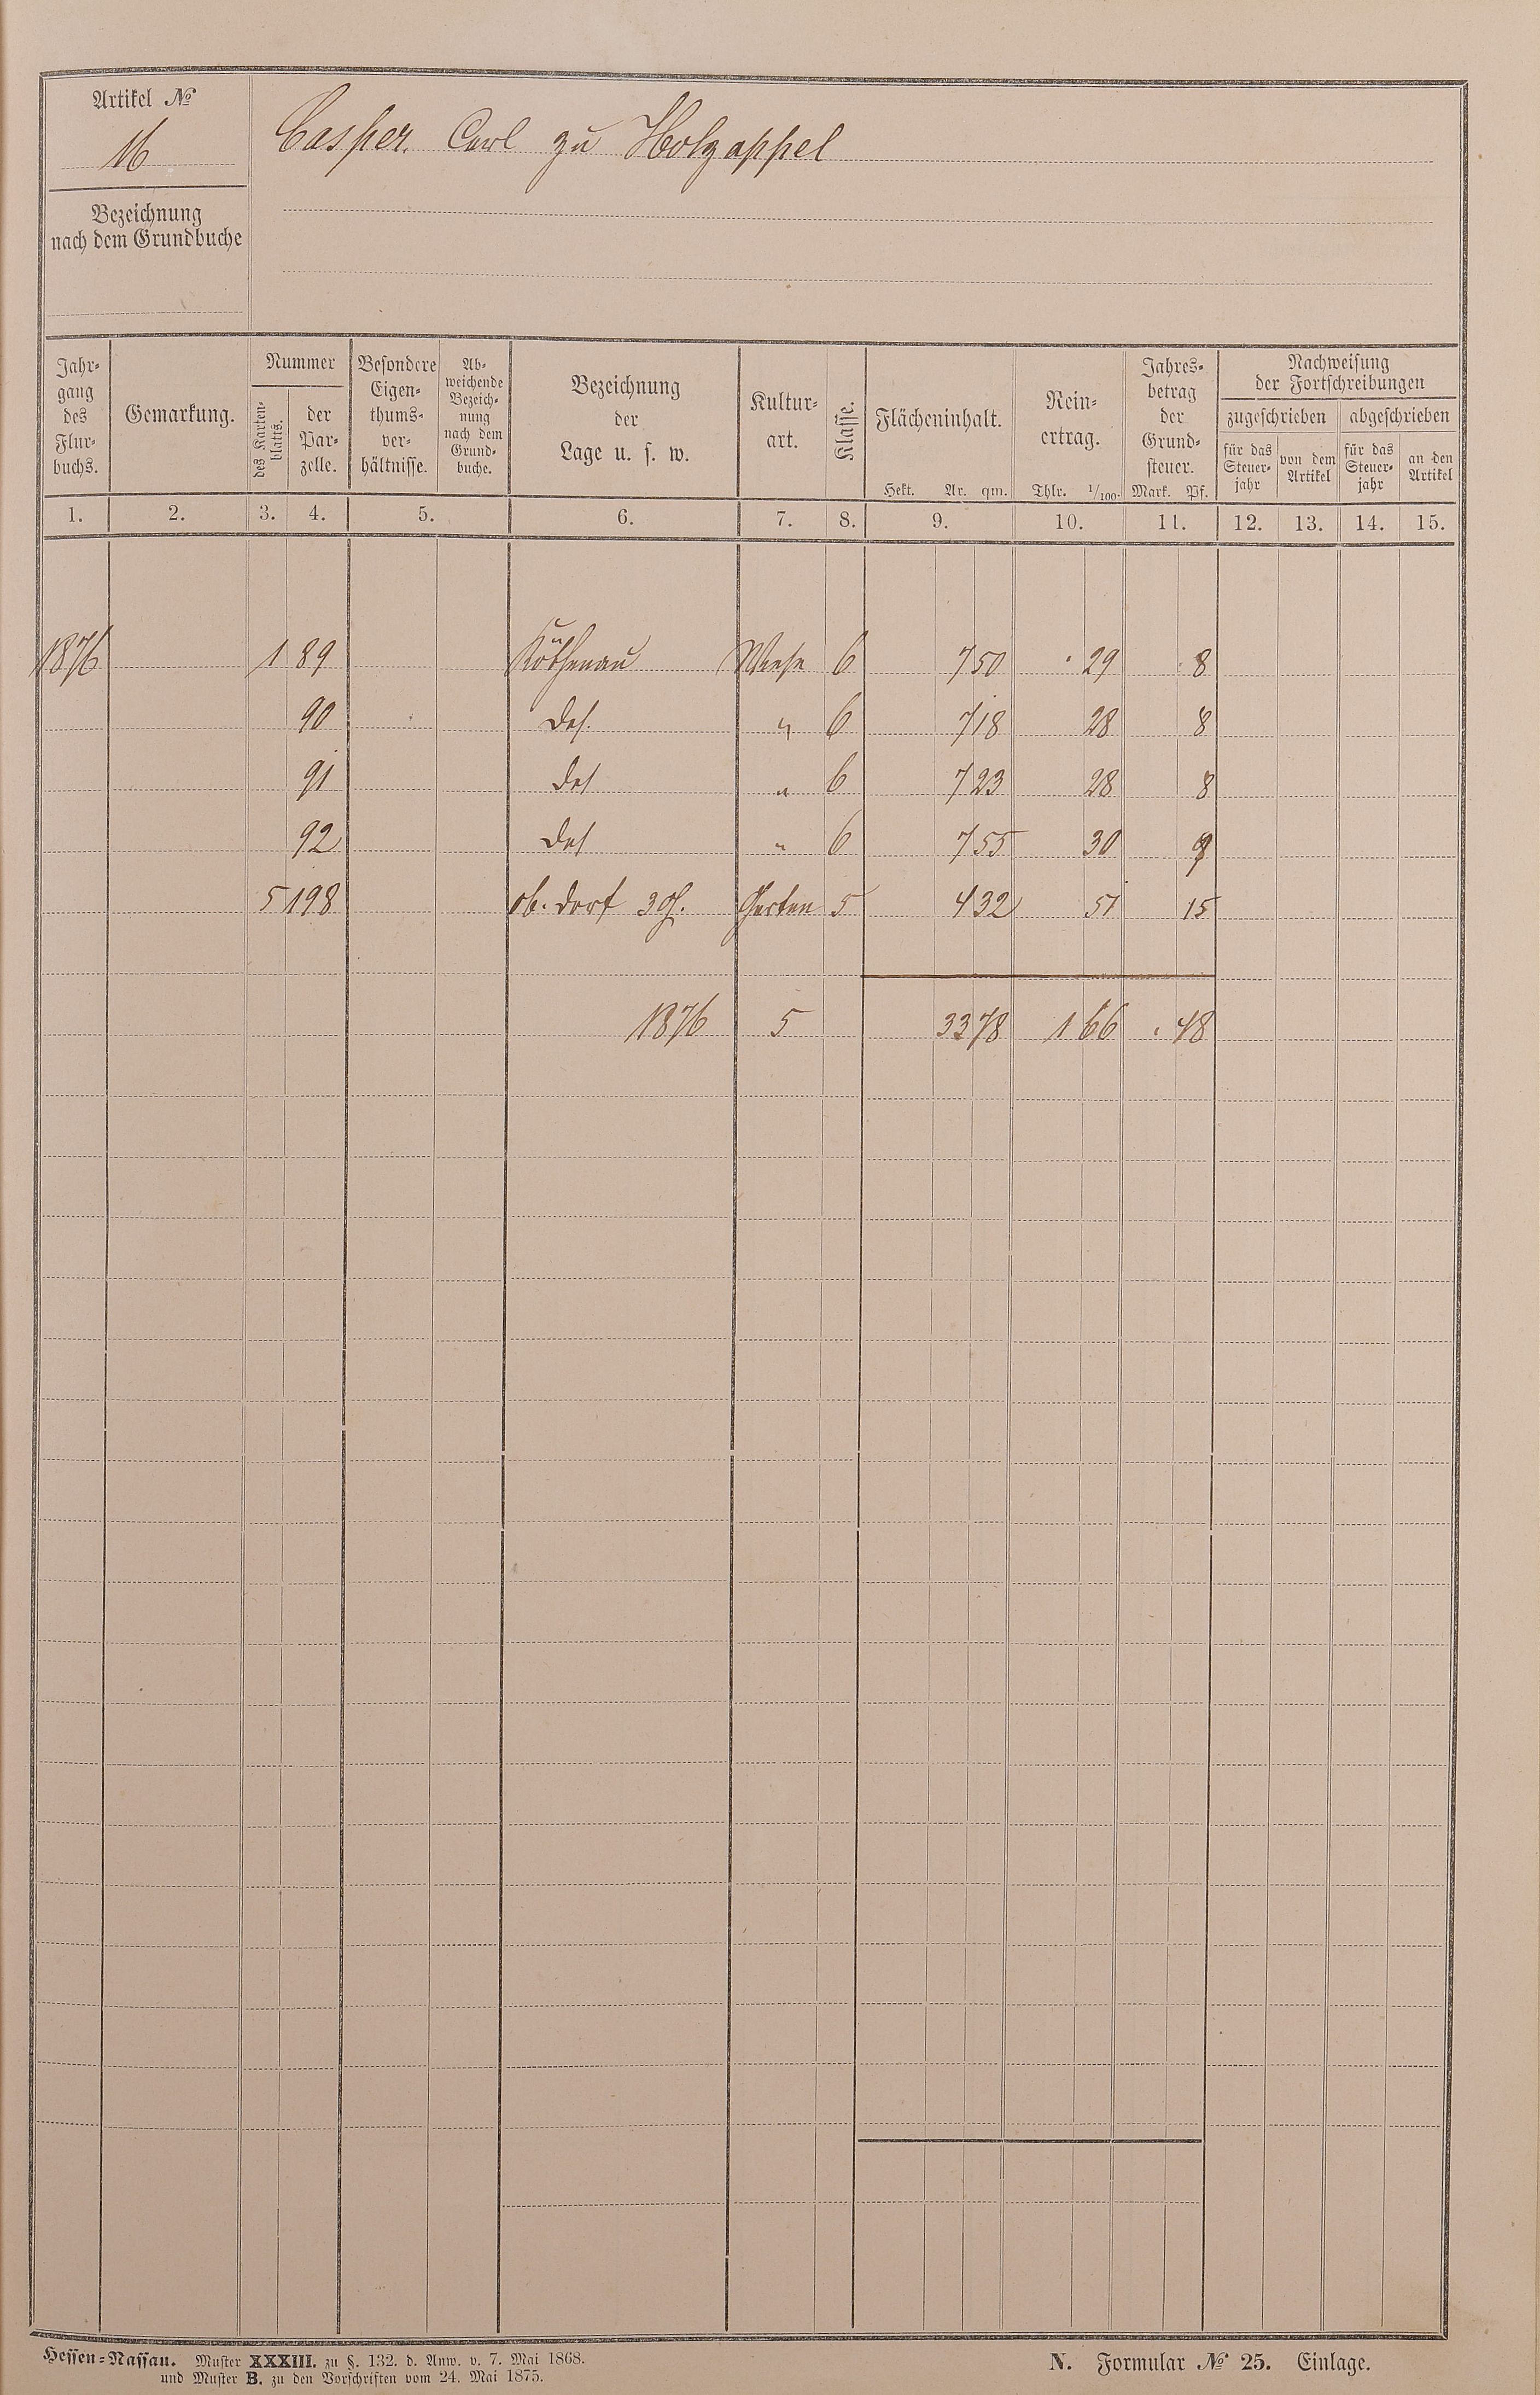 Artikel №
16
Casper, Carl zu Holzappel
Bezeichnung
nach dem Grundbuche
Jahr-
gang
des
Flur-
buchs.
Gemarkung.
Nummer
des Karten-
blatts.
der
Par-
zelle.
Besondere
Eigen-
thums-
ver-
hältnisse.
Ab-
weichende
Bezeich-
nung
nach dem
Grund-
buche.
Bezeichnung
der
Lage u. s. w.
Kultur-
art.
Klasse.
Flächeninhalt.
Hekt. Ar. qm.
Rein-
ertrag.
Thlr. 1/100.
Jahres-
betrag
der
Grund-
steuer.
Mark. Pf.
Nachweisung
der Fortschreibungen
zugeschrieben abgeschrieben
für das
Steuer-
jahr
von dem
Artikel
für das
Steuer-
jahr
an den
Artikel
1. 2. 3. 4. 5. 6. 7. 8. 9. 10. 11. 12. 13. 14. 15.
1876 1 89 Wiese 6 7 50 . 29 . 8
90 " 6 7 18 28 8
91 " 6 7 23 28 8
92 " 6 7 55 30 9
5 198 ob. Dorf Garten 5 4 32 51 15
1876 5 33 78 1 66 . 48
Hessen-Nassau. Muster XXXIII. zu §. 132. d. Anw. v. 7. Mai 1868.
und Muster B. zu den Vorschriften vom 24. Mai 1875.
N. Formular № 25. Einlage.